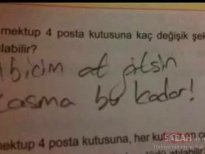 mektup 4 posta kutusuna kaç değişik şek
labilir?
Abicim at gitsin
Kasma bu kadar!
ektup 4 posta kutusuna, her kut